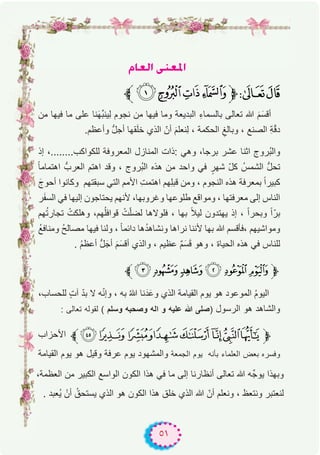 المعنى العام
قَالَ تَعَالَى: ﴿ وَٱلسَّمَآءِ ذَاتِ ٱلۡبُرُوجِ ١ ﴾
أقسَمَ الله تعالى بالسماءِ البديعة وما فيها من نجوم لِيُنَبِّهَنا على ما فيها من
دقَّةِ الصنع ، وبالغِ الحكمة ، لِنعلمَ أنَّ الذي خلَقها أجلُّ وأعظم.
والبُروج اثنا عشر برجا، وهي :ذات المنازل المعروفة للكواكب........، إذ
تحلُّ الشمسُ كلَّ شهرٍ في واحد من هذه البُروج ، وقد اهتم العربُ اهتماماً
كبيراً بمعرفة هذه النجوم ، ومن قبلهم اهتمت الأمم التي سبقتهم وكانوا أحوجَ
الناس إلى معرفتها ، ومواقع طلوعها وغروبها، لأنهم يحتاجون إليها في السفر
برّاً وبحراً ، إذ يهتدون ليلاً بها ، فلولاها لضلَّتْ قوافلُهم، وهلكتْ تجارتُهم
ومواشيهم ،فأقسم الله بها لأننا نراها ونشاهدُها دائماً ، ولنا فيها مصالحُ ومنافعُ
للناس في هذه الحياة ، وهو قَسَمٌ عظيم ، والذي أقسَمَ أجلُّ أعظمُ .
﴿ وَٱلۡيَوۡمِ ٱلۡمَوۡعُودِ ٢ وَشَاهِدٖ وَمَشۡهُودٖ ٣ ﴾
اليومُ الموعود هو يوم القيامة الذي وعَدَنا اللهُ به ، وإنَّه لا بدَّ آتٍ للحساب،
والشاهد هو الرسول (صلى الله عليه و اله وصحبه وسلم ) لقوله تعالى :
﴿ يَٰٓأَيُّهَا ٱلنَّبِيُّ إِنَّآ أَرۡسَلۡنَٰكَ شَٰهِدٗا وَمُبَشِّرٗا وَنَذِيرٗا ٤٥ ﴾ الأحزاب
وفسره بعض العلماء بأنه يوم الجمعة والمشهود يوم عرفة وقيل هو يوم القيامة
وبهذا يوجِّه الله تعالى أنظارنا إلى ما في هذا الكون الواسع الكبير من العظمة،
لنعتبر ونتعظ ، ونعلم أنَّ الله الذي خلق هذا الكون هو الذي يستحقُّ أنْ يُعبد .
٥١